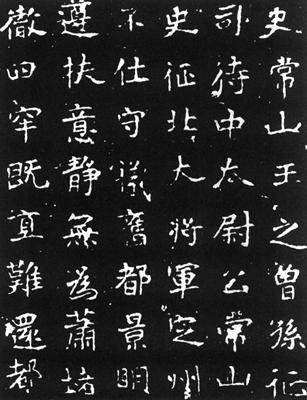 史常山王之曾孫征
司侍中太尉公常山
史征北大將軍定州
不仕守舊都景明
遵扶意靜無為蕭堵
徹窂既難還都